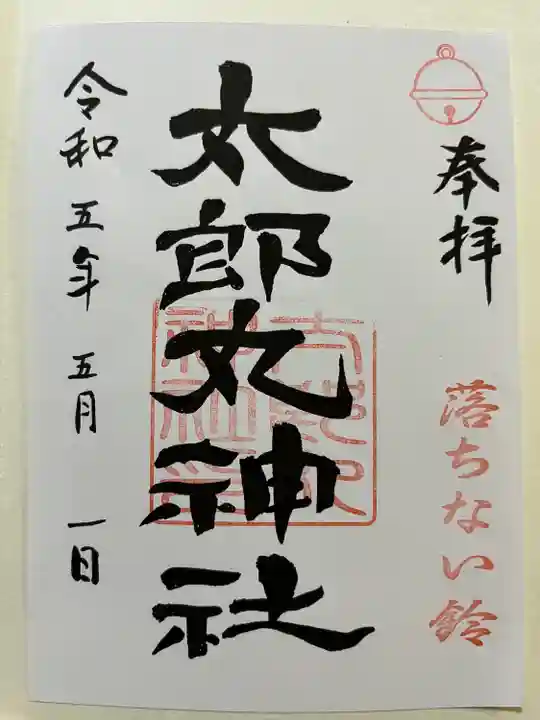 奉拝
落ちない鈴
太郎丸神社
太郎丸
神社印
令和五年五月一日